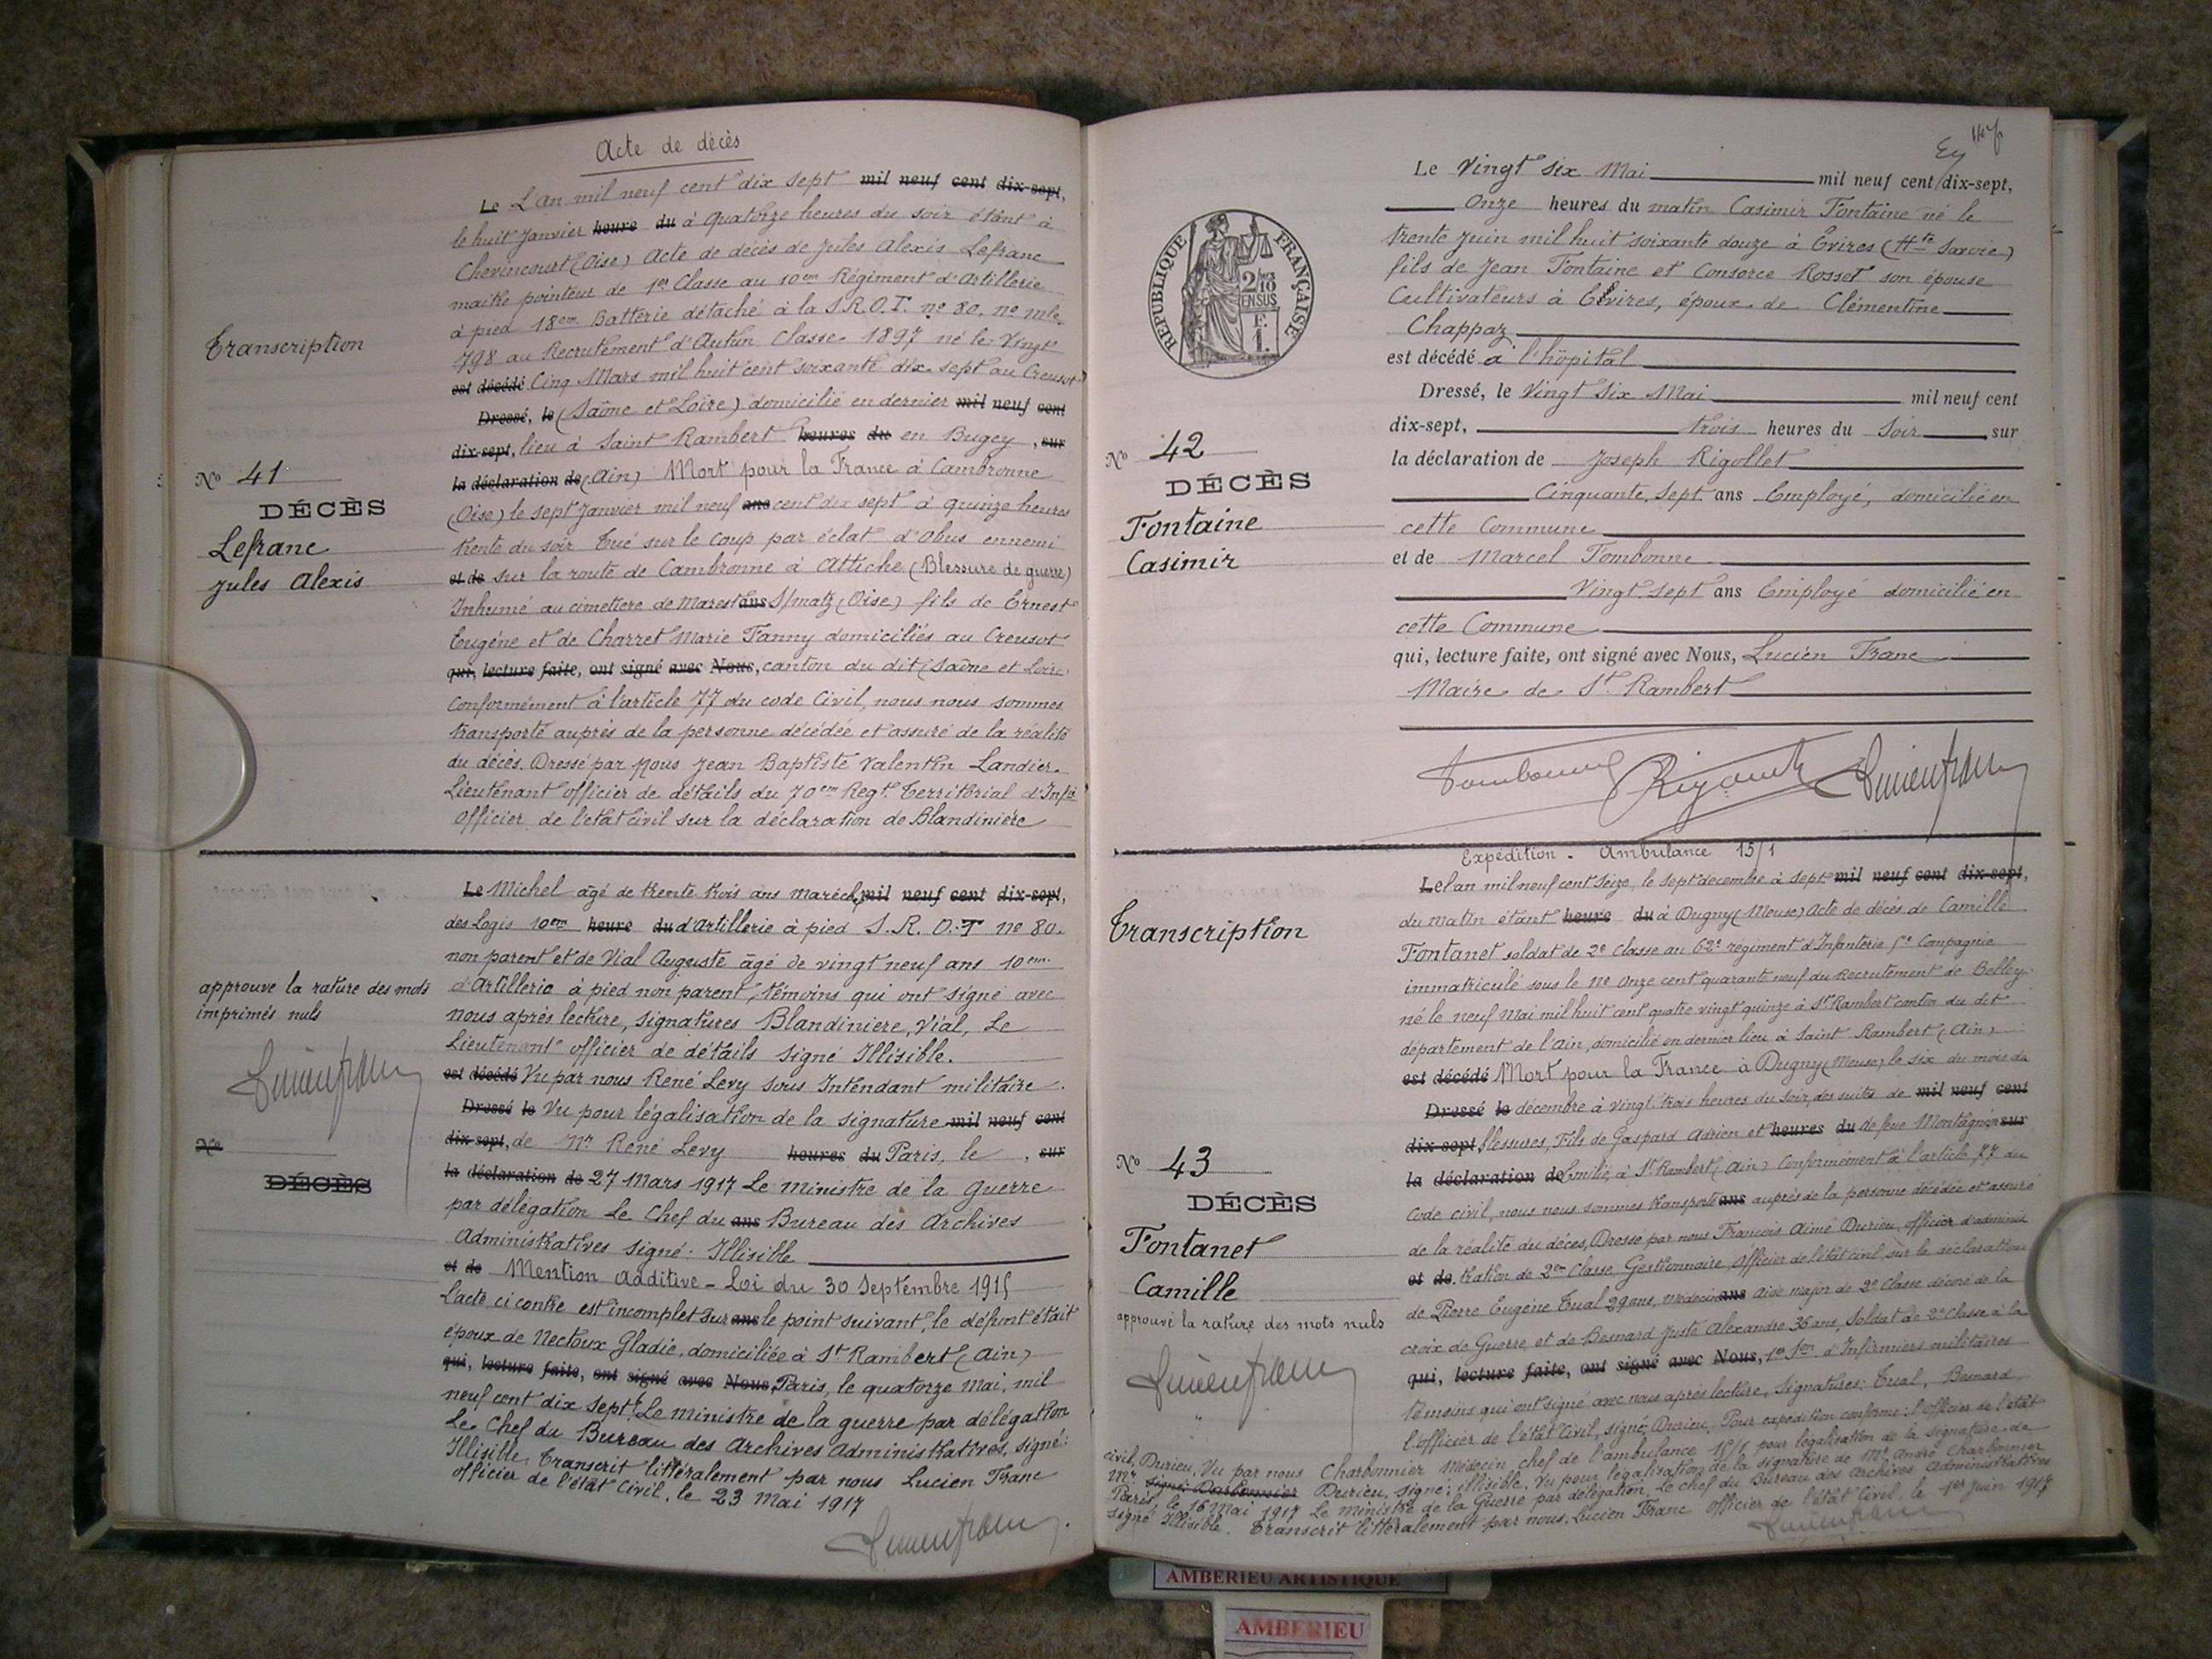 Acte de décès
Transcription
Le L'an mil neuf cent dix sept mil neuf cent dix-sept,
le huit Janvier heure du à quatorze heures du soir étant à
Chevincourt (Oise) Acte de décès de Jules Alexis Lefranc
maitre pointeur de 1er Classe au 10em Régiment d'Artillerie
à pied 18em Batterie détaché à la S.R.O.T. no 80. no mle
798 au Recrutement d'Autun Classe 1897 né le Vingt
est décédé Cinq Mars mil huit cent soixante dix-sept au Creusot
Dressé, le (Saône et Loire) domicilié en dernier mil neuf cent
dix-sept, lieu à Saint Rambert heures du en Bugey, sur
la déclaration de (Ain) Mort pour la France à Cambronne
(Oise) le sept Janvier mil neuf ans cent dix sept à quinze heures
trente du soir Tué sur le coup par éclat d'obus ennemi
et de sur la route de Cambronne à Attiche (Blessure de guerre)
Inhumé au cimetière de Marest ans S/matz (Oise) fils de Ernest
Eugène et de Charret Marie Fanny domiciliés au Creusot
qui, lecture faite, ont signé avec Nous, canton du dit (Saône et Loire)
Conformément à l'article 77 du code Civil, nous nous sommes
transporté auprès de la personne décédée et assuré de la réalité
du décès. Dressé par Nous Jean Baptiste Valentin Landier
Lieutenant officier de détails du 70em Regt. Territorial d'Infie
Officier de l'état Civil sur la déclaration de Blandinière
No 41
DÉCÈS
Lefranc
Jules Alexis
Le Michel âgé de trente trois ans maréchl mil neuf cent dix-sept,
des Logis 10em heure du d'Artillerie à pied S.R.O.T no 80.
non parent et de Vial Auguste âgé de vingt neuf ans 10em
d'Artillerie à pied non parent, témoins qui ont signé avec
nous après lecture, signatures Blandiniere, Vial, Le
Lieutenant officier de détails signé Illisible.
est décédé Vu par nous René Levy sous Intendant militaire.
Dressé le Vu pour légalisation de la signature mil neuf cent
dix-sept, de Mr René Levy heures du Paris, le , sur
la déclaration de 27 Mars 1917 Le Ministre de la Guerre
par délégation Le Chef du ans Bureau des Archives
Administratives signé : Illisible
et de Mention additive - Loi du 30 Septembre 1915
L'acte ci contre est incomplet sur ans le point suivant, le défunt était
époux de Nectoux Gladie, domiciliée à St Rambert (Ain)
qui, lecture faite, ont signé avec Nous, Paris, le quatorze Mai, mil
neuf cent dix sept, Le Ministre de la guerre par délégation
Le Chef du Bureau des Archives Administratives, signé :
Illisible. Transcrit littéralement par nous Lucien Franc
officier de l'état Civil, le 23 Mai 1917
approuve la rature des mots
imprimés nuls
No
DÉCÈS
Le Vingt six Mai mil neuf cent dix-sept,
Onze heures du matin Casimir Fontaine né le
trente Juin mil huit soixante douze à Evires (Hte Savoie)
fils de Jean Fontaine et Consorce Rosset son épouse
Cultivateurs à Evires, époux de Clémentine
Chappaz
est décédé à l'hôpital
Dressé, le Vingt Six Mai mil neuf cent
dix-sept, trois heures du Soir, sur
la déclaration de Joseph Rigollet
Cinquante, Sept ans Employé, domicilié en
cette Commune
et de Marcel Tombonne
Vingt-sept ans Employé domicilié en
cette Commune
qui, lecture faite, ont signé avec Nous, Lucien Franc
Maire de St. Rambert
RÉPUBLIQUE FRANÇAISE
2/10
EN SUS
No 42
DÉCÈS
Fontaine
Casimir
Expédition - Ambulance 15/1
Le l'an mil neuf cent seize, le sept décembre à sept mil neuf cent dix-sept,
du matin étant heure du à Dugny (Meuse) Acte de décès de Camille
Fontanet soldat de 2e Classe au 62e régiment d'Infanterie 5e Compagnie
immatriculé sous le no onze cent quarante neuf du Recrutement de Belley
né le neuf Mai mil huit cent quatre vingt quinze à St Rambert canton du dit
département de l'Ain, domicilié en dernier lieu à Saint Rambert (Ain)
est décédé Mort pour la France à Dugny (Meuse) le six du mois de
Dressé le décembre à vingt trois heures du soir, des suites de mil neuf cent
dix-sept blessures, Fils de Gaspard Adrien et heures du de feue Montagnier sur
la déclaration de Emilie, à St Rambert (Ain) Conformément à l'article 77 du
Code civil, nous nous sommes transporté ans auprès de la personne décédée et assuré
de la réalité du décès, Dressé par nous François Aimé Durieu, officier d'adminis
et de tration de 2em Classe, Gestionnaire, Officier de l'état civil, sur la déclaration
de Pierre Eugène Tual 29 ans, médecin ans aide major de 2e Classe décoré de la
croix de Guerre, et de Besnard Juste Alexandre 36 ans, Soldat de 2e Classe à la
qui, lecture faite, ont signé avec Nous, 1re Son d'Infirmiers militaires
témoins qui ont signé avec nous après lecture, Signatures : Tual, Besnard
l'officier de l'état Civil, signé, Durieu, Pour expédition conforme : l'officier de l'état
civil, Durieu, Vu par nous Charbonnier Médecin chef de l'ambulance 15/1 pour légalisation de la signature de
Mr signé Darbonnier Durieu, signé : illisible, Vu pour légalisation de la signature de Mr André Charbonnier
Paris, le 16 Mai 1917 Le Ministre de la Guerre par délégation, Le chef du Bureau des Archives Administratives
signé Illisible. Transcrit littéralement par nous, Lucien Franc officier de l'état Civil, le 1er Juin 1917
Transcription
No 43
DÉCÈS
Fontanet
Camille
approuve la rature des mots nuls
AMBERIEU ARTISTIQUE
AMBERIEU